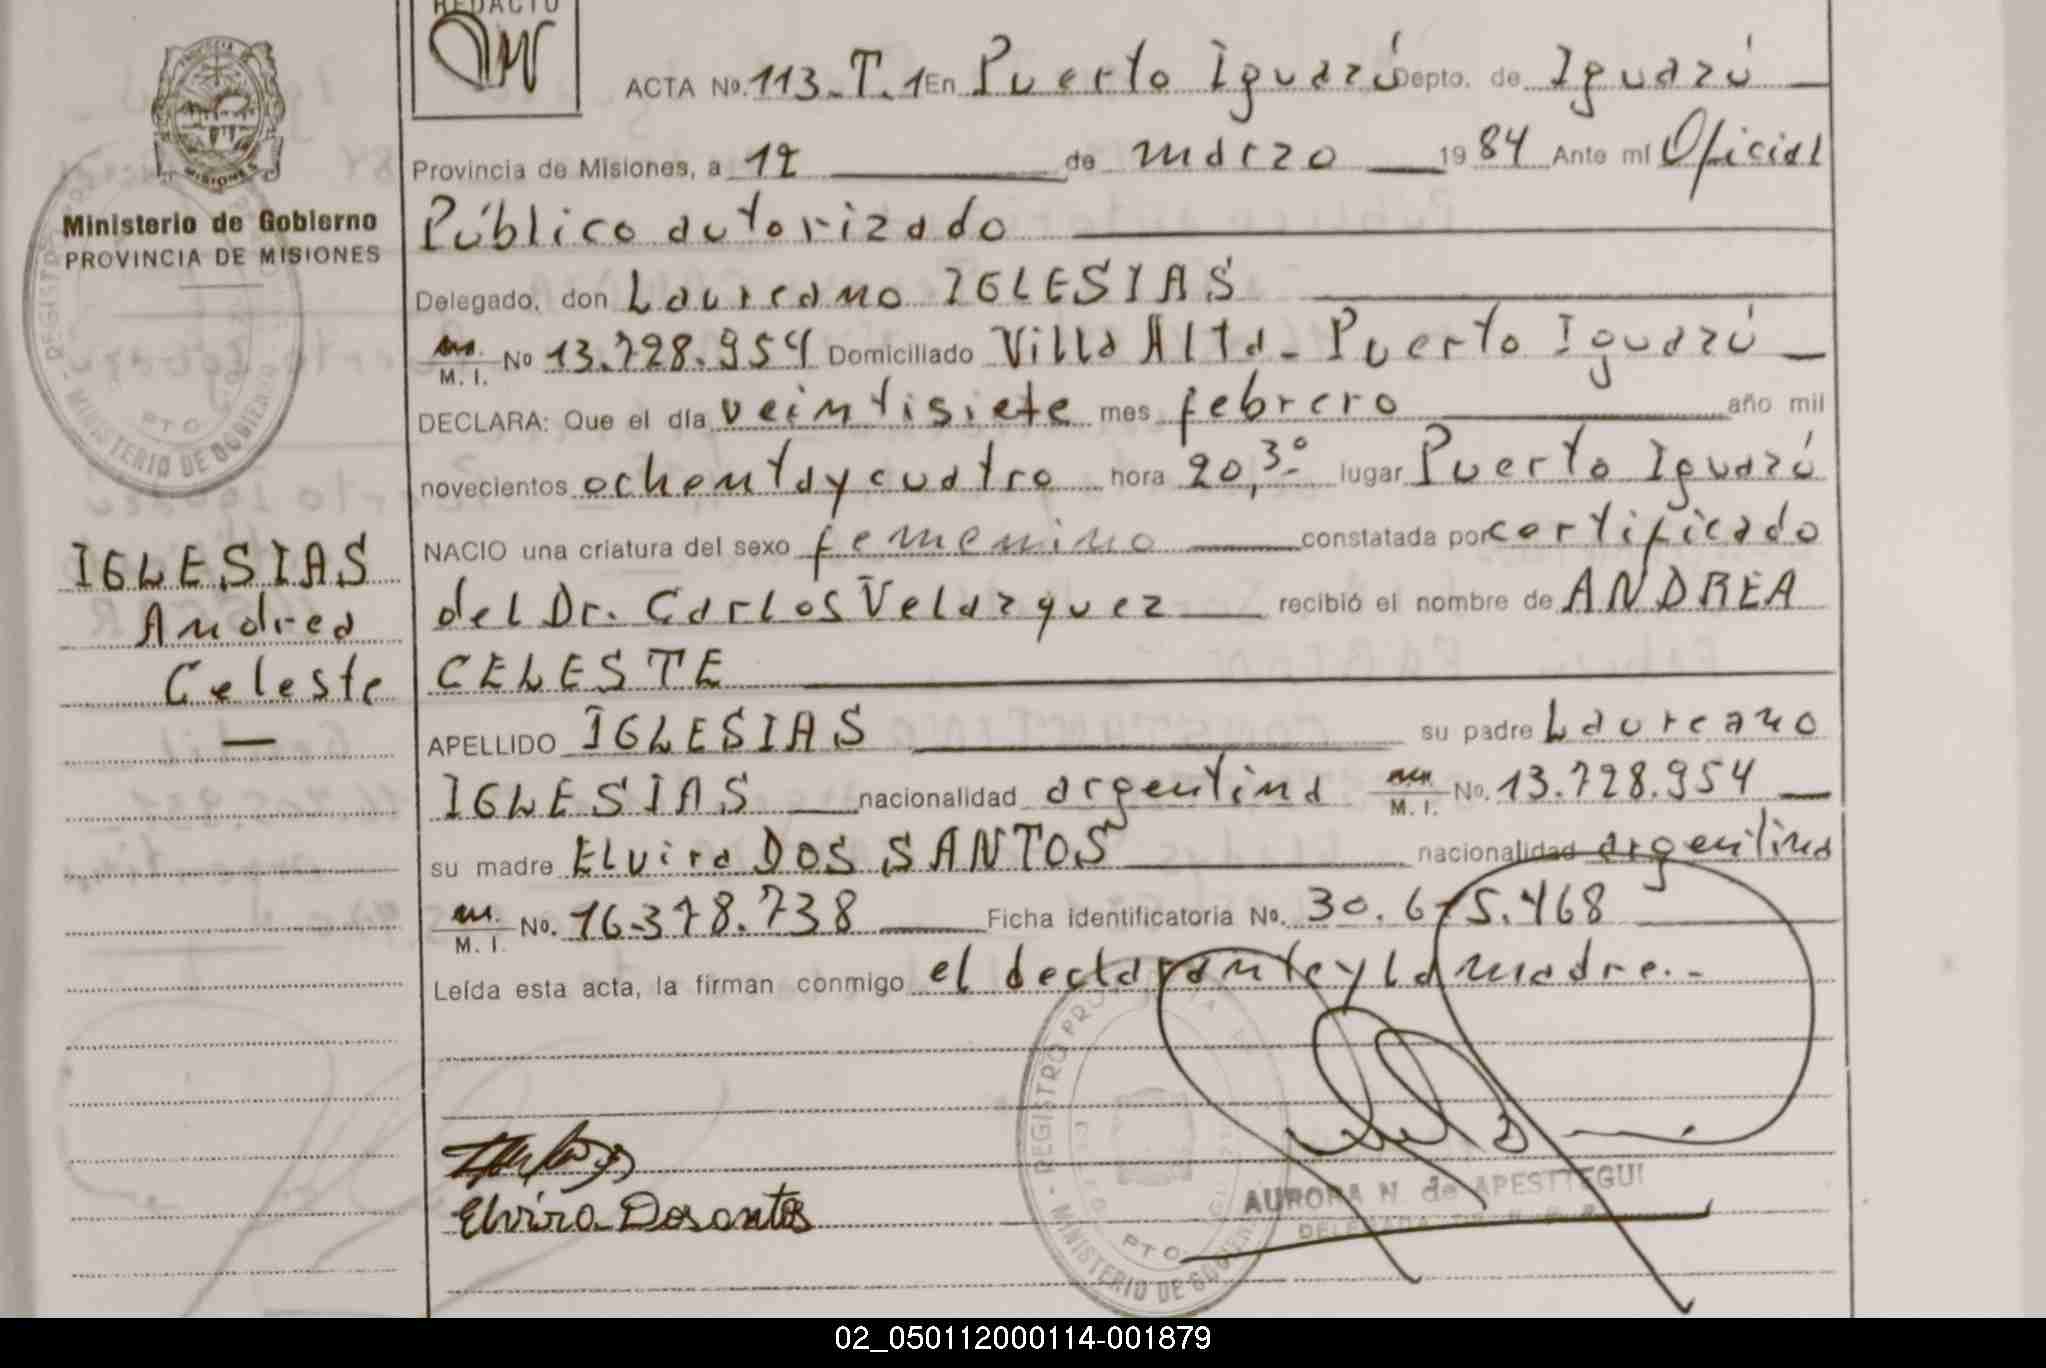 REDACTO
ACTA No. 113.T.1 En Puerto Iguazú Depto. de Iguazú
Provincia de Misiones, a 12 de marzo 1984 Ante mí Oficial
Público autorizado
Delegado, don Laureano IGLESIAS
M. I. No 13.728.954 Domiciliado Villa Alta - Puerto Iguazú
DECLARA: Que el día veintisiete mes febrero año mil
novecientos ochenta y cuatro hora 20,30 lugar Puerto Iguazú
NACIO una criatura del sexo femenino constatada por certificado
del Dr. Carlos Velazquez recibió el nombre de ANDREA
CELESTE
APELLIDO IGLESIAS su padre Laureano
IGLESIAS nacionalidad argentina M. I. No. 13.728.954
su madre Elvira DOS SANTOS nacionalidad argentina
M. I. No. 16.378.738 Ficha identificatoria No.
Leída esta acta, la firman conmigo el declarante y la madre.-
Elvira Dosantos
AURORA N. de APESTEGUI
DELEGADA
REGISTRO
MINISTERIO DE GOBIERNO
PTO.
PROVINCIA
MISIONES
Ministerio de Gobierno
PROVINCIA DE MISIONES
REGISTRO
PTO.
MINISTERIO DE GOBIERNO
IGLESIAS
Andrea
Celeste
02_050112000114-001879